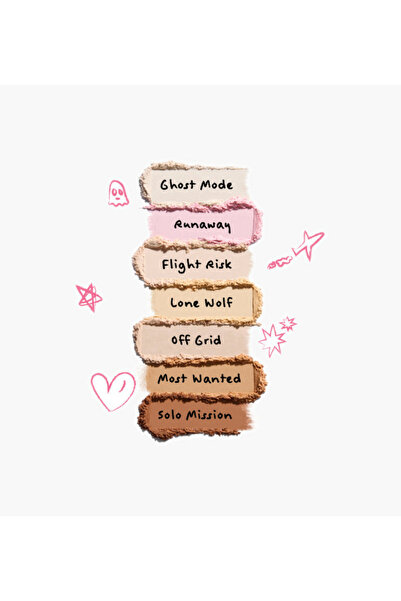 Ghost Mode
Runaway
Flight Risk
Lone Wolf
Off Grid
Most Wanted
Solo Mission